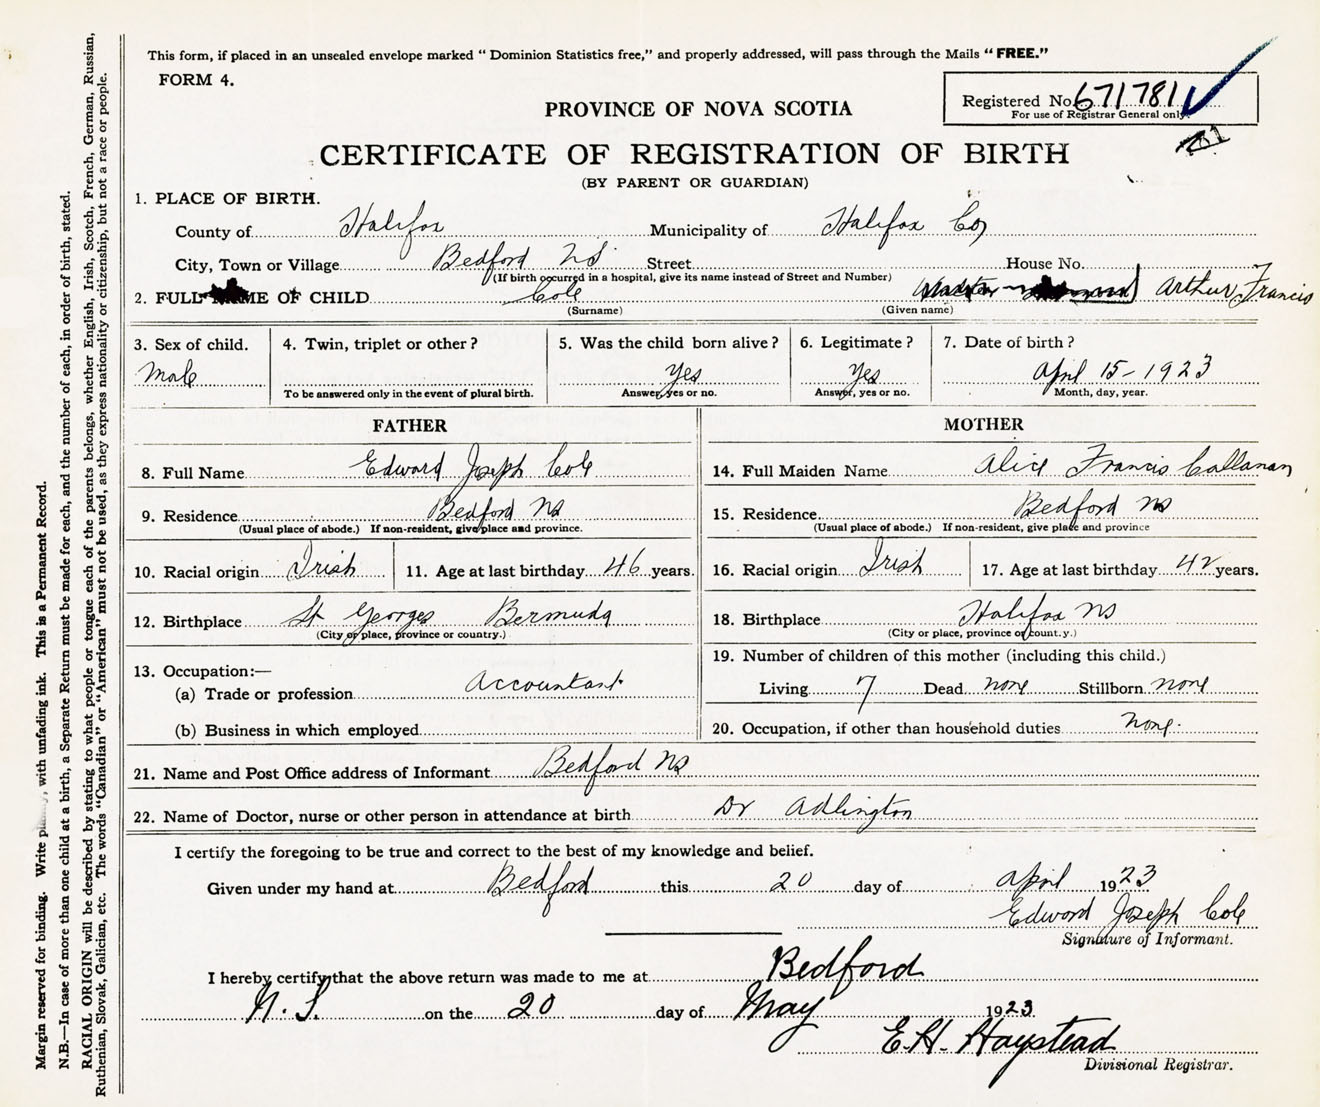 This form, if placed in an unsealed envelope marked "Dominion Statistics free," and properly addressed, will pass through the Mails "FREE."
FORM 4.
Registered No. 671781
For use of Registrar General only.
781
PROVINCE OF NOVA SCOTIA
CERTIFICATE OF REGISTRATION OF BIRTH
(BY PARENT OR GUARDIAN)
1. PLACE OF BIRTH.
County of Halifax Municipality of Halifax Co
City, Town or Village Bedford NS Street House No.
(If birth occurred in a hospital, give its name instead of Street and Number)
2. FULL NAME OF CHILD Cole Arthur Francis
(Surname) (Given name)
3. Sex of child. Male
4. Twin, triplet or other?
To be answered only in the event of plural birth.
5. Was the child born alive? Yes
Answer, yes or no.
6. Legitimate? Yes
Answer, yes or no.
7. Date of birth? April 15-1923
Month, day, year.
FATHER
8. Full Name Edward Joseph Cole
9. Residence Bedford NS
(Usual place of abode.) If non-resident, give place and province.
10. Racial origin Irish 11. Age at last birthday 46 years.
12. Birthplace St Georges Bermuda
(City or place, province or country.)
13. Occupation:—
(a) Trade or profession Accountant
(b) Business in which employed
MOTHER
14. Full Maiden Name Alice Francis Callanan
15. Residence Bedford NS
(Usual place of abode.) If non-resident, give place and province
16. Racial origin Irish 17. Age at last birthday 42 years.
18. Birthplace Halifax NS
(City or place, province or count.y.)
19. Number of children of this mother (including this child.)
Living 7 Dead none Stillborn none
20. Occupation, if other than household duties none.
21. Name and Post Office address of Informant Bedford NS
22. Name of Doctor, nurse or other person in attendance at birth Dr Adlington
I certify the foregoing to be true and correct to the best of my knowledge and belief.
Given under my hand at Bedford this 20 day of April 1923
Edward Joseph Cole
Signature of Informant.
I hereby certify that the above return was made to me at Bedford
N.S. on the 20 day of May 1923
E.H. Haystead
Divisional Registrar.
Margin reserved for binding. Write, with unfading ink. This is a Permanent Record.
N.B.—In case of more than one child at a birth, a Separate Return must be made for each, and the number of each, in order of birth, stated.
RACIAL ORIGIN will be described by stating to what people or tongue each of the parents belongs, whether English, Irish, Scotch, French, German, Russian,
Ruthenian, Slovak, Galician, etc. The words "Canadian" or "American" must not be used, as they express nationality or citizenship, but not a race or people.